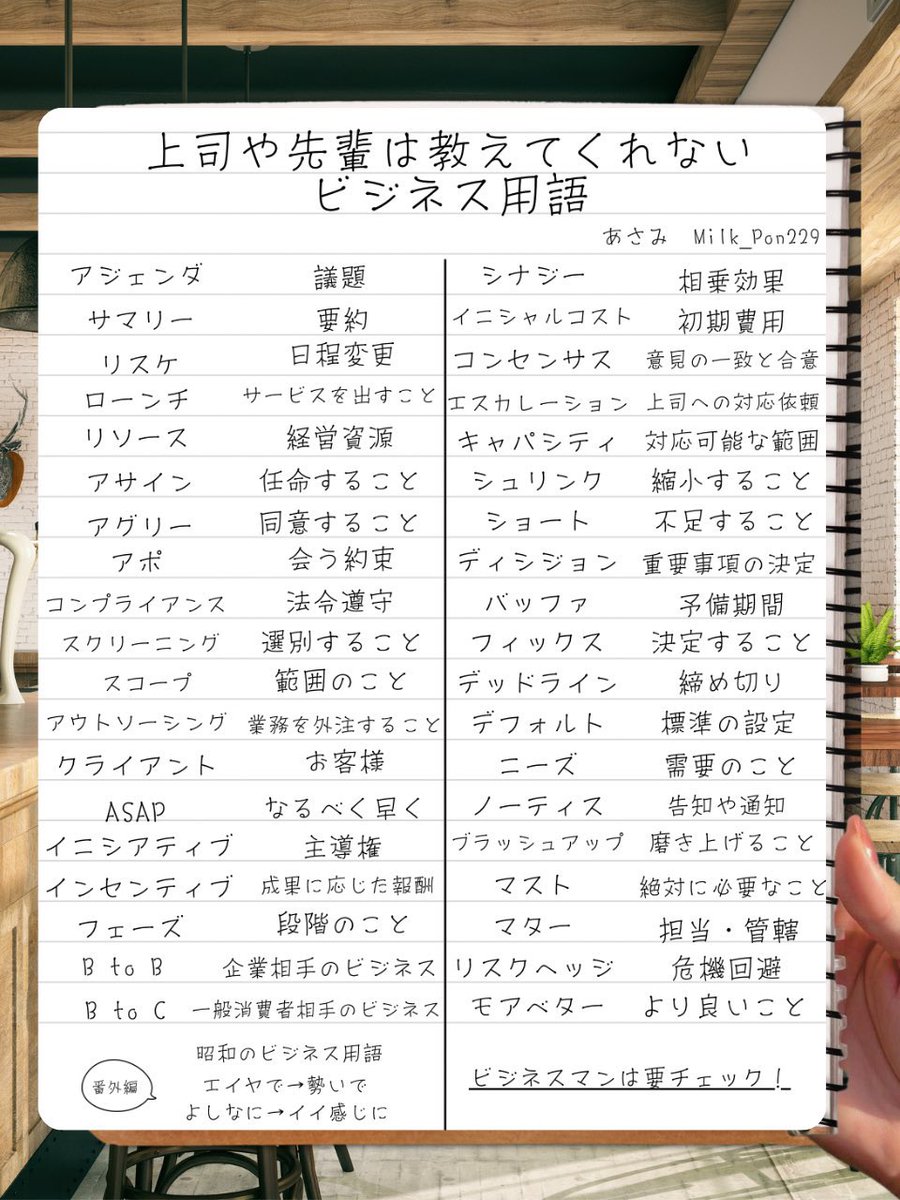 上司や先輩は教えてくれない
ビジネス用語
あさみ Milk_Pon229
アジェンダ 議題
サマリー 要約
リスケ 日程変更
ローンチ サービスを出すこと
リソース 経営資源
アサイン 任命すること
アグリー 同意すること
アポ 会う約束
コンプライアンス 法令遵守
スクリーニング 選別すること
スコープ 範囲のこと
アウトソーシング 業務を外注すること
クライアント お客様
ASAP なるべく早く
イニシアティブ 主導権
インセンティブ 成果に応じた報酬
フェーズ 段階のこと
B to B 企業相手のビジネス
B to C 一般消費者相手のビジネス
番外編
昭和のビジネス用語
エイヤで→勢いで
よしなに→イイ感じに
シナジー 相乗効果
イニシャルコスト 初期費用
コンセンサス 意見の一致と合意
エスカレーション 上司への対応依頼
キャパシティ 対応可能な範囲
シュリンク 縮小すること
ショート 不足すること
ディシジョン 重要事項の決定
バッファ 予備期間
フィックス 決定すること
デッドライン 締め切り
デフォルト 標準の設定
ニーズ 需要のこと
ノーティス 告知や通知
ブラッシュアップ 磨き上げること
マスト 絶対に必要なこと
マター 担当・管轄
リスクヘッジ 危機回避
モアベター より良いこと
ビジネスマンは要チェック!